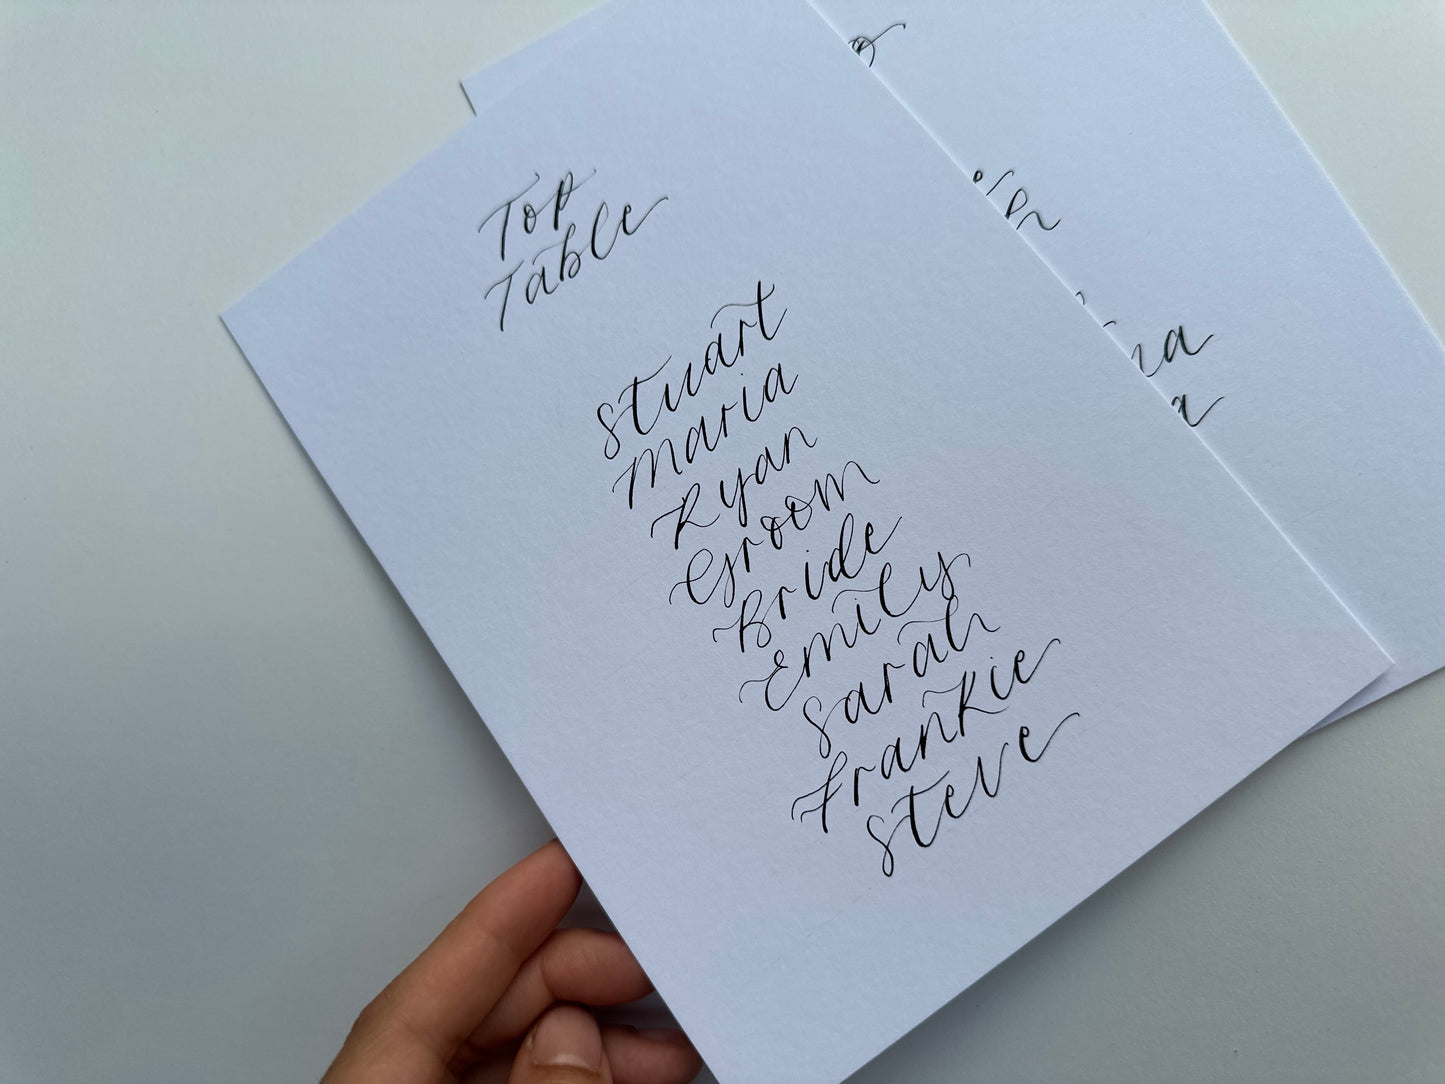 Top
Table
Stuart
Maria
Ryan
Groom
Bride
Emily
Sarah
Frankie
Steve